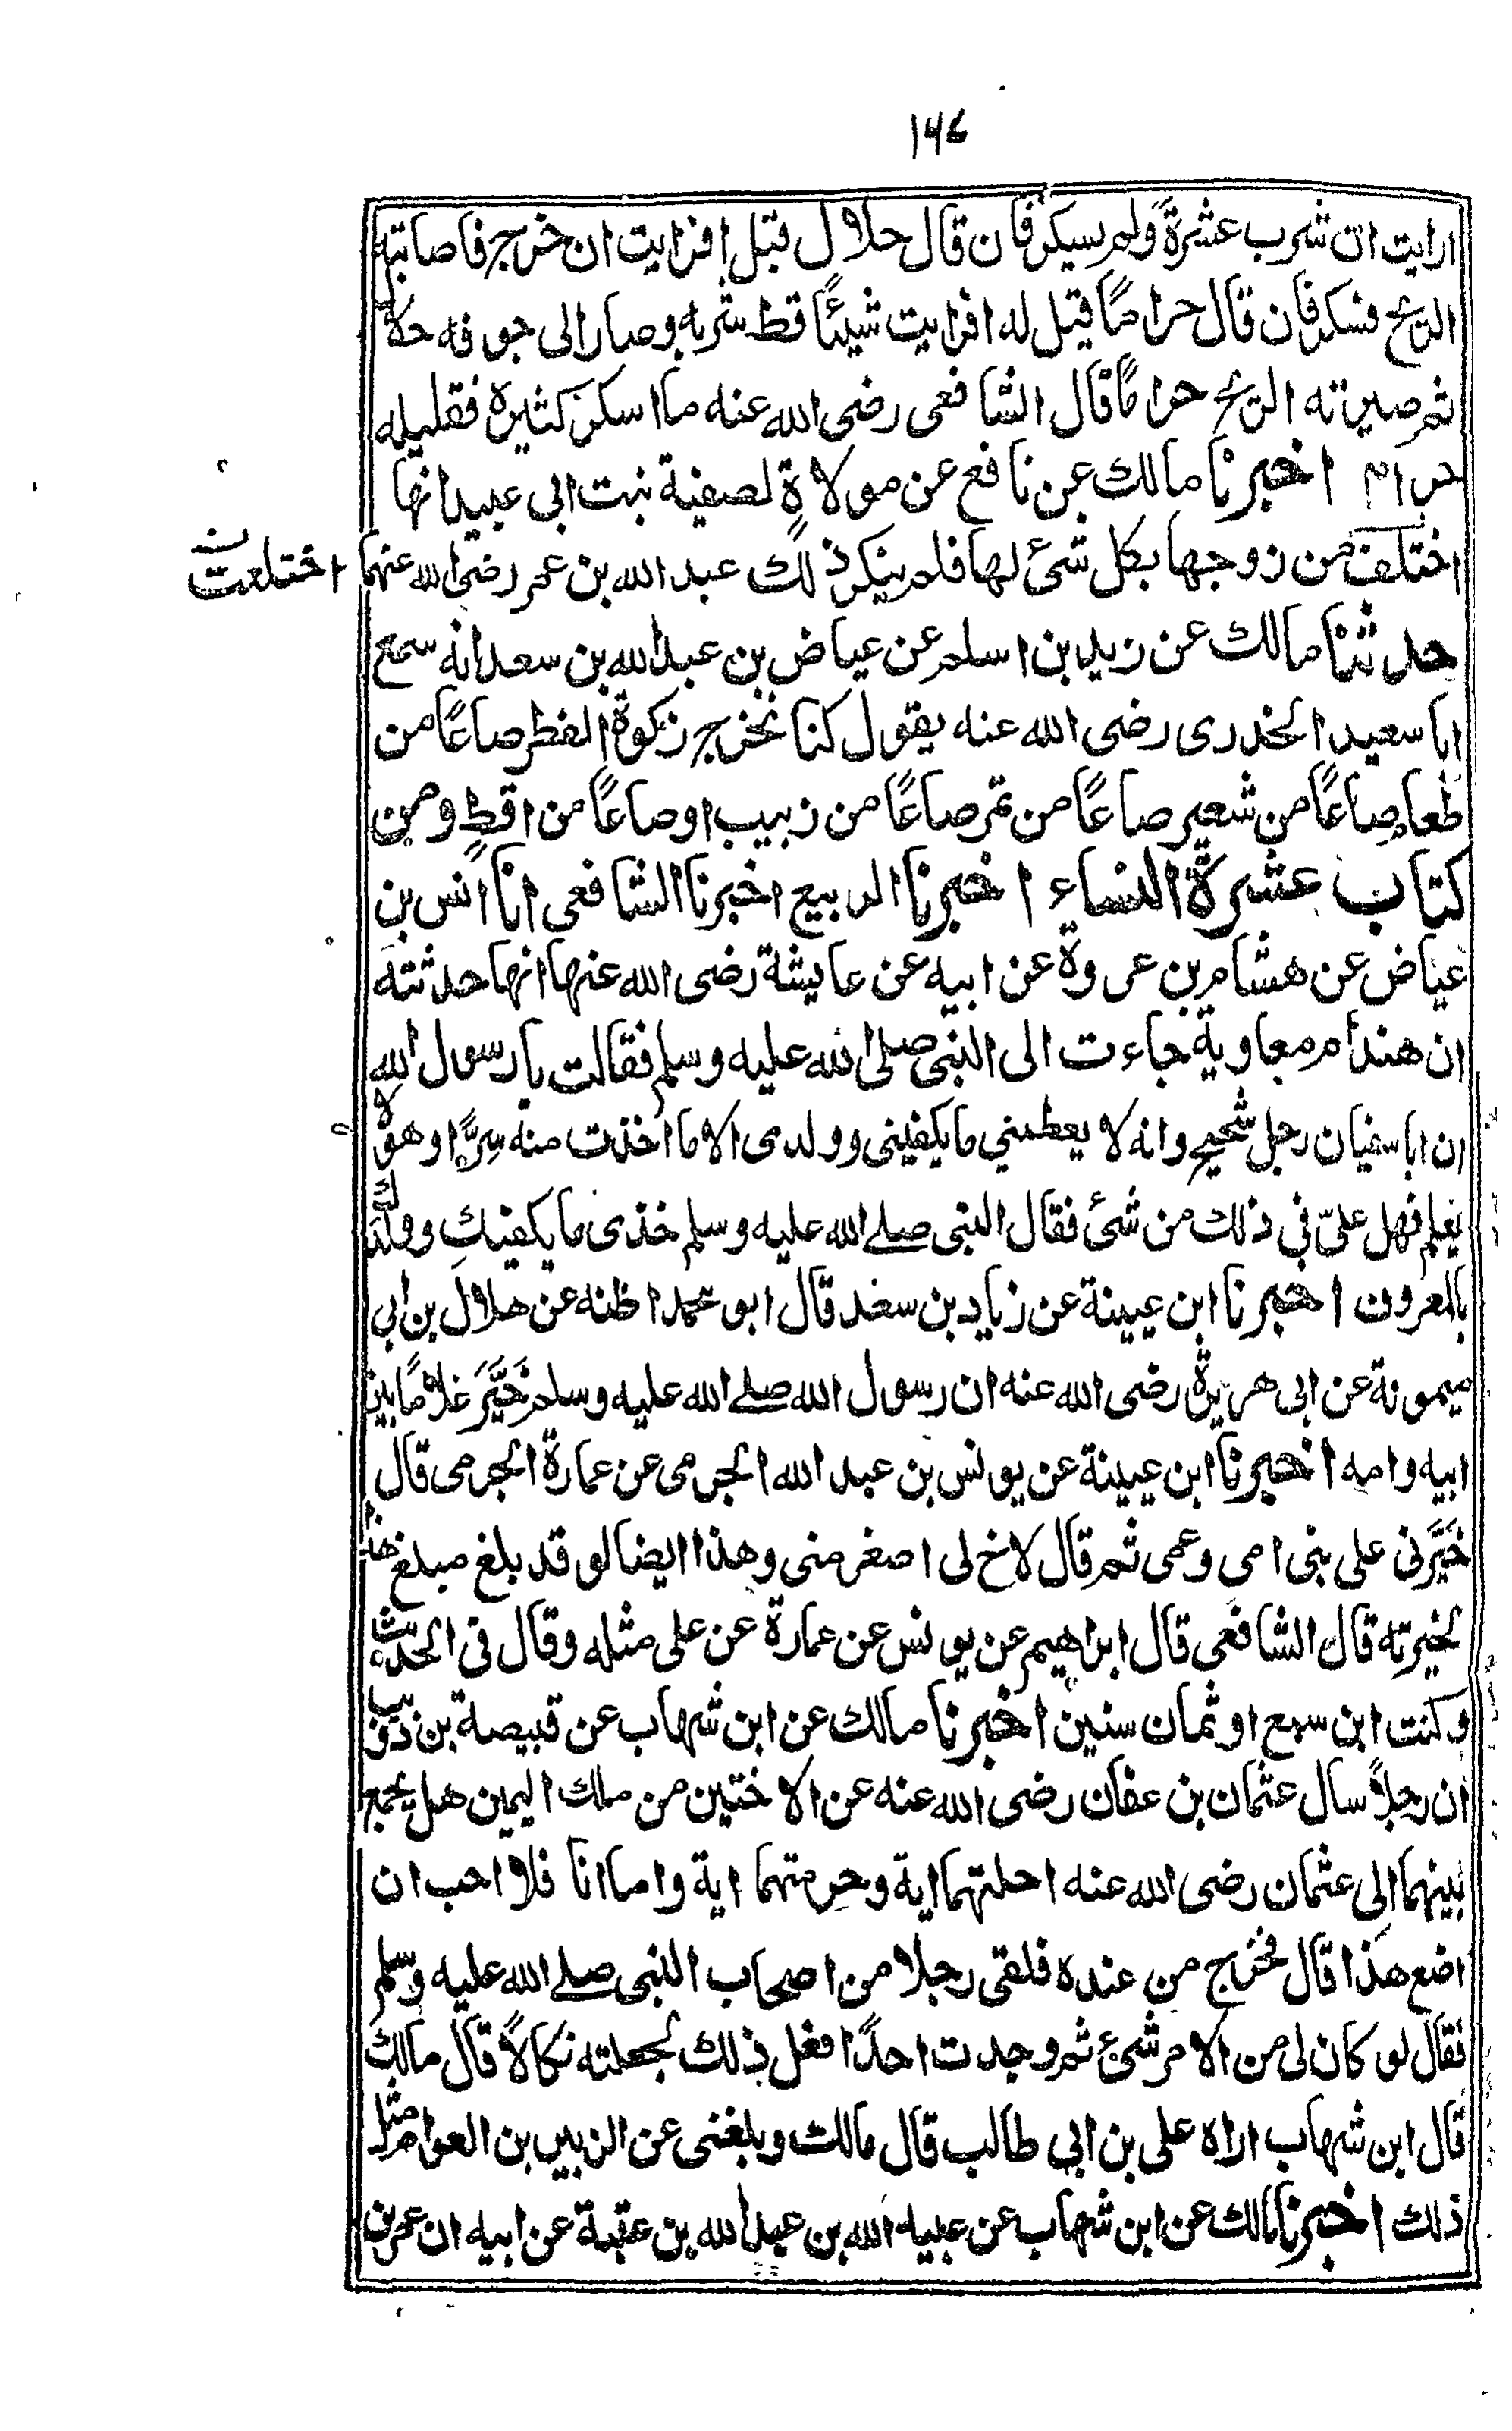 ١٤٦
ارايت ان شرب عشرة ولم يسكر فان قال حلال قيل افرايت ان خرج فاصابته
الريح فسكر فان قال حراما قيل له افرايت شيئًا قط شربه وصار الى جوفه حلالا
ثم صيرته الريح حرامًا قال الشافعى رضى الله عنه ما اسكر كثيره فقليله
حرام اخبرنا مالك عن نافع عن مولاة لصفية بنت ابى عبيد انها
اختلف من زوجها بكل شئ لها فلم ينكر ذلك عبد الله بن عمر رضى الله عنهما
اختلعت
حدثنا مالك عن زيد بن اسلم عن عياض بن عبد الله بن سعد انه سمع
ابا سعيد الخدرى رضى الله عنه يقول كنا نخرج زكوة الفطر صاعًا من
طعام صاعًا من شعير صاعًا من تمر صاعًا من زبيب او صاعًا من اقط ومن
كتاب عشرة النساء اخبرنا الربيع اخبرنا الشافعى انا انس بن
عياض عن هشام بن عروة عن ابيه عن عايشة رضى الله عنها انها حدثته
ان هندا م معاوية جاءت الى النبى صلى الله عليه وسلم فقالت يا رسول الله
ان ابا سفيان رجل شحيح وانه لا يعطينى ما يكفينى وولدى الا ما اخذت منه سِرًّا وهو لا
يعلم فهل علىّ فى ذلك من شئ فقال النبى صلے الله عليه وسلم خذى ما يكفيكِ وولدك
بالمعروف اخبرنا ابن عيينة عن زياد بن سعد قال ابو محمد اظنه عن هلال بن ابى
ميمونة عن ابى هريرة رضى الله عنه ان رسول الله صلے الله عليه وسلم خَيَّرَ غلامًا بين
ابيه وامه اخبرنا ابن عيينة عن يونس بن عبد الله الجرمى عن عمارة الجرمى قال
خَيَّرنى على بنى امى وعمى ثم قال لاخ لى اصغر منى وهذا ايضا لو قد بلغ مبلغ هذا
لخيرته قال الشافعى قال ابراهيم عن يونس عن عمارة عن على مثله وقال فى الحديث
وكنت ابن سبع او ثمان سنين اخبرنا مالك عن ابن شهاب عن قبيصة بن ذويب
ان رجلًا سال عثمان بن عفان رضى الله عنه عن الاختين من ملك اليمين هل يجمع
بينهما الى عثمان رضى الله عنه احلتهما اية وحرمتهما اية واما انا فلا احب ان
اضع هذا قال فخرج من عنده فلقى رجلا من اصحاب النبى صلے الله عليه وسلم
فقال لو كان لى من الامر شئ ثم وجدت احدًا فعل ذلك لجعلته نكالًا قال مالك
قال ابن شهاب اراه على بن ابى طالب قال مالك وبلغنى عن الزبير بن العوام مثل
ذلك اخبرنا مالك عن ابن شهاب عن عبيد الله بن عبد الله بن عتبة عن ابيه ان عمر بن